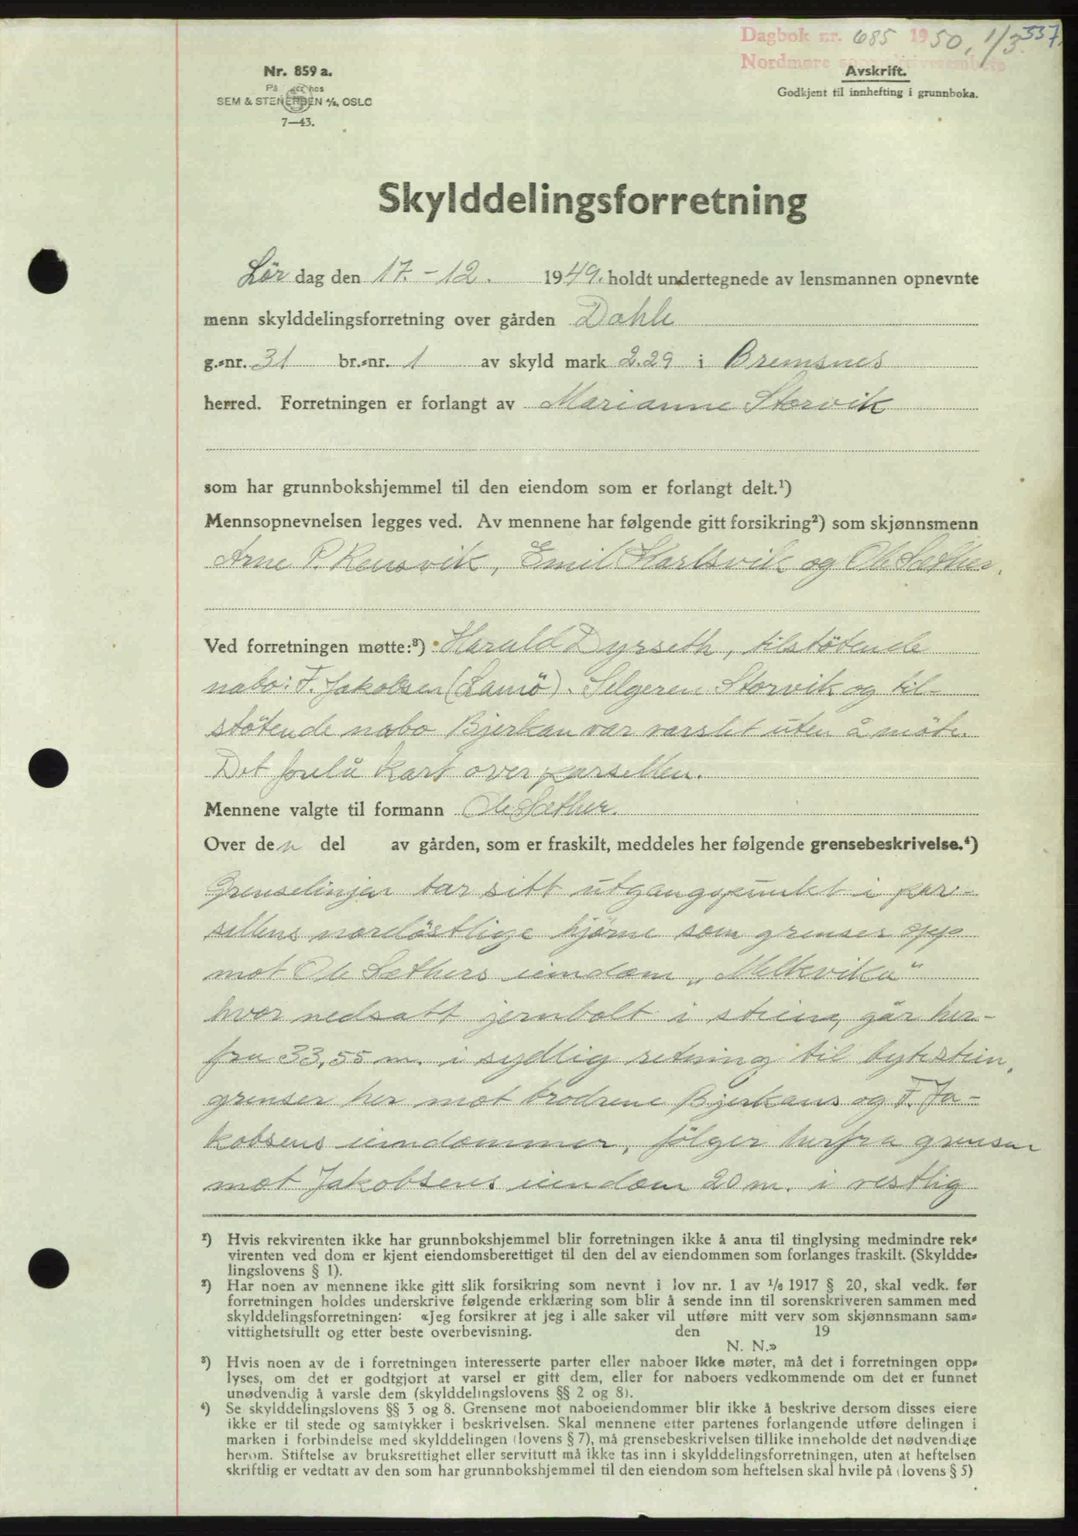 Dagbok nr. 685 1950, 1/3 337.
Nordmøre sorenskriverembete
Nr. 859 a.
Avskrift.
Godkjent til innhefting i grunnboka.
SEM & STENERSEN A/S, OSLO
7—43.
Skylddelingsforretning
Lör dag den 17. - 12. 1949. holdt undertegnede av lensmannen opnevnte
menn skylddelingsforretning over gården Dahle
g.-nr. 31 br.-nr. 1 av skyld mark 2.29 i Bremsnes
herred. Forretningen er forlangt av Marianne Storvik
som har grunnbokshjemmel til den eiendom som er forlangt delt.¹)
Mennsopnevnelsen legges ved. Av mennene har følgende gitt forsikring²) som skjønnsmenn
Arne P. Rensvik, Emil Karlsvik og Ole Sæther.
Ved forretningen møtte:³) Harald Dyrseth, tilstötende
nabo: F. Jakobsen (Lamö). Selgeren Storvik og til-
stötende nabo Bjerkan var varslet uten å möte.
Det forelå kart over parsellen.
Mennene valgte til formann Ole Sæther.
Over den del av gården, som er fraskilt, meddeles her følgende grensebeskrivelse.⁴)
Grenselinjen tar sitt utgangspunkt i par-
sellens nordöstlige hjörne som grenser opp
mot Ole Sæthers eiendom „Melkvika“
hvor nedsatt jernbolt i stein, går her-
fra 33,55 m. i sydlig retning til bytestein,
grenser her mot brödrene Bjerkans og F. Ja-
kobsens eiendommer, fölger herfra grensen
mot Jakobsens eiendom 20 m. i vestlig
¹) Hvis rekvirenten ikke har grunnbokshjemmel blir forretningen ikke å anta til tinglysing medmindre rek-
virenten ved dom er kjent eiendomsberettiget til den del av eiendommen som forlanges fraskilt. (Skyldde-
lingslovens § 1).
²) Har noen av mennene ikke gitt slik forsikring som nevnt i lov nr. 1 av 1/6 1917 § 20, skal vedk. før
forretningen holdes underskrive følgende erklæring som blir å sende inn til sorenskriveren sammen med
skylddelingsforretningen: «Jeg forsikrer at jeg i alle saker vil utføre mitt verv som skjønnsmann sam-
vittighetsfullt og etter beste overbevisning. den 19
N. N.»
³) Hvis noen av de i forretningen interesserte parter eller naboer ikke møter, må det i forretningen opp-
lyses, om det er godtgjort at varsel er gitt dem, eller for naboers vedkommende om det er funnet
unødvendig å varsle dem (skylddelingslovens §§ 2 og 8).
⁴) Se skylddelingslovens §§ 3 og 8. Grensene mot naboeiendommer blir ikke å beskrive dersom disses eiere
ikke er til stede og samtykker i beskrivelsen. Skal mennene etter partenes forlangende utføre delingen i
marken i forbindelse med skylddelingen (lovens § 7), må grensebeskrivelsen tillike inneholde det nødvendige
herom. Stiftelse av bruksrettighet eller servitutt må ikke tas inn i skylddelingsforretningen, uten at heftelsen
skriftlig er vedtatt av den som har grunnbokshjemmel til den eiendom som heftelsen skal hvile på (lovens § 5)